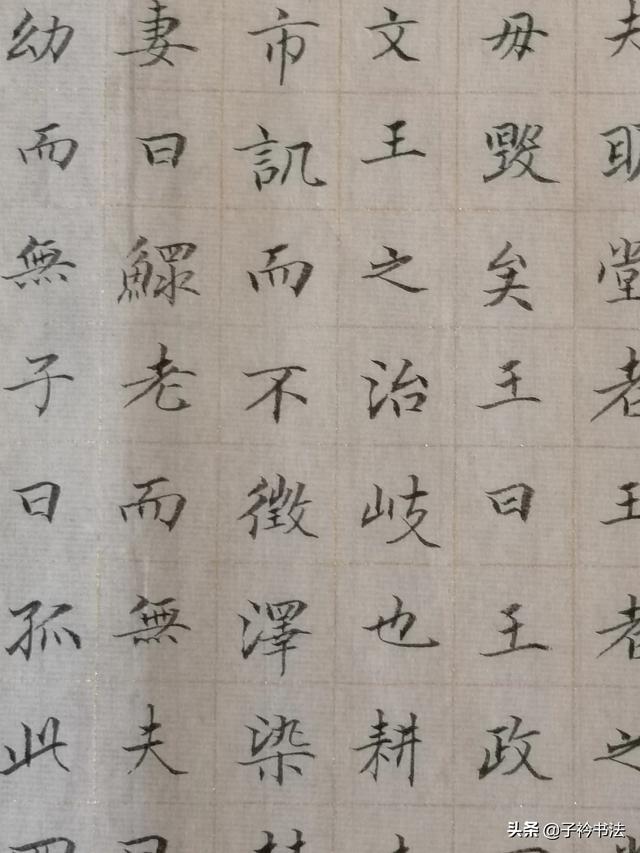 夫眀堂者王者之
毋毀矣王曰王政
文王之治岐也耕
市訊而不徵澤染
妻曰鰥老而無夫
幼而無子曰孤此
头条 @子衿书法